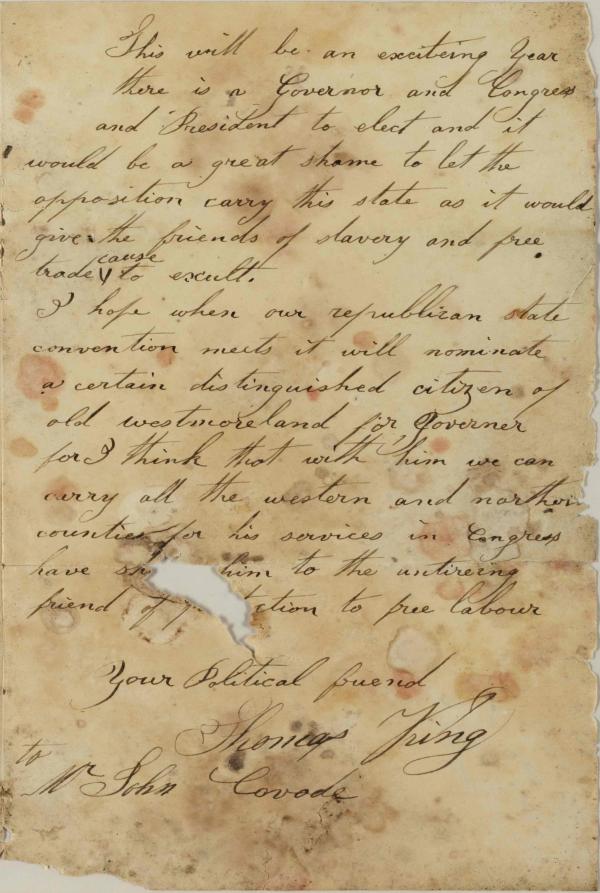 This will be an exciteing Year
there is a Governor and Congress
and President to elect and it
would be a great shame to let the
opposition carry this state as it would
give the friends of slavery and free
cause
trade to exult.
I hope when our republican state
convention meets it will nominate
a certain distinguished citizen of
old westmoreland for Governer
for I think that with him we can
carry all the western and northern
counties for his services in Congress
have sh him to the untireing
friend of p ction to free labour
Your Political friend
Thomas King
to
Mr John Covode